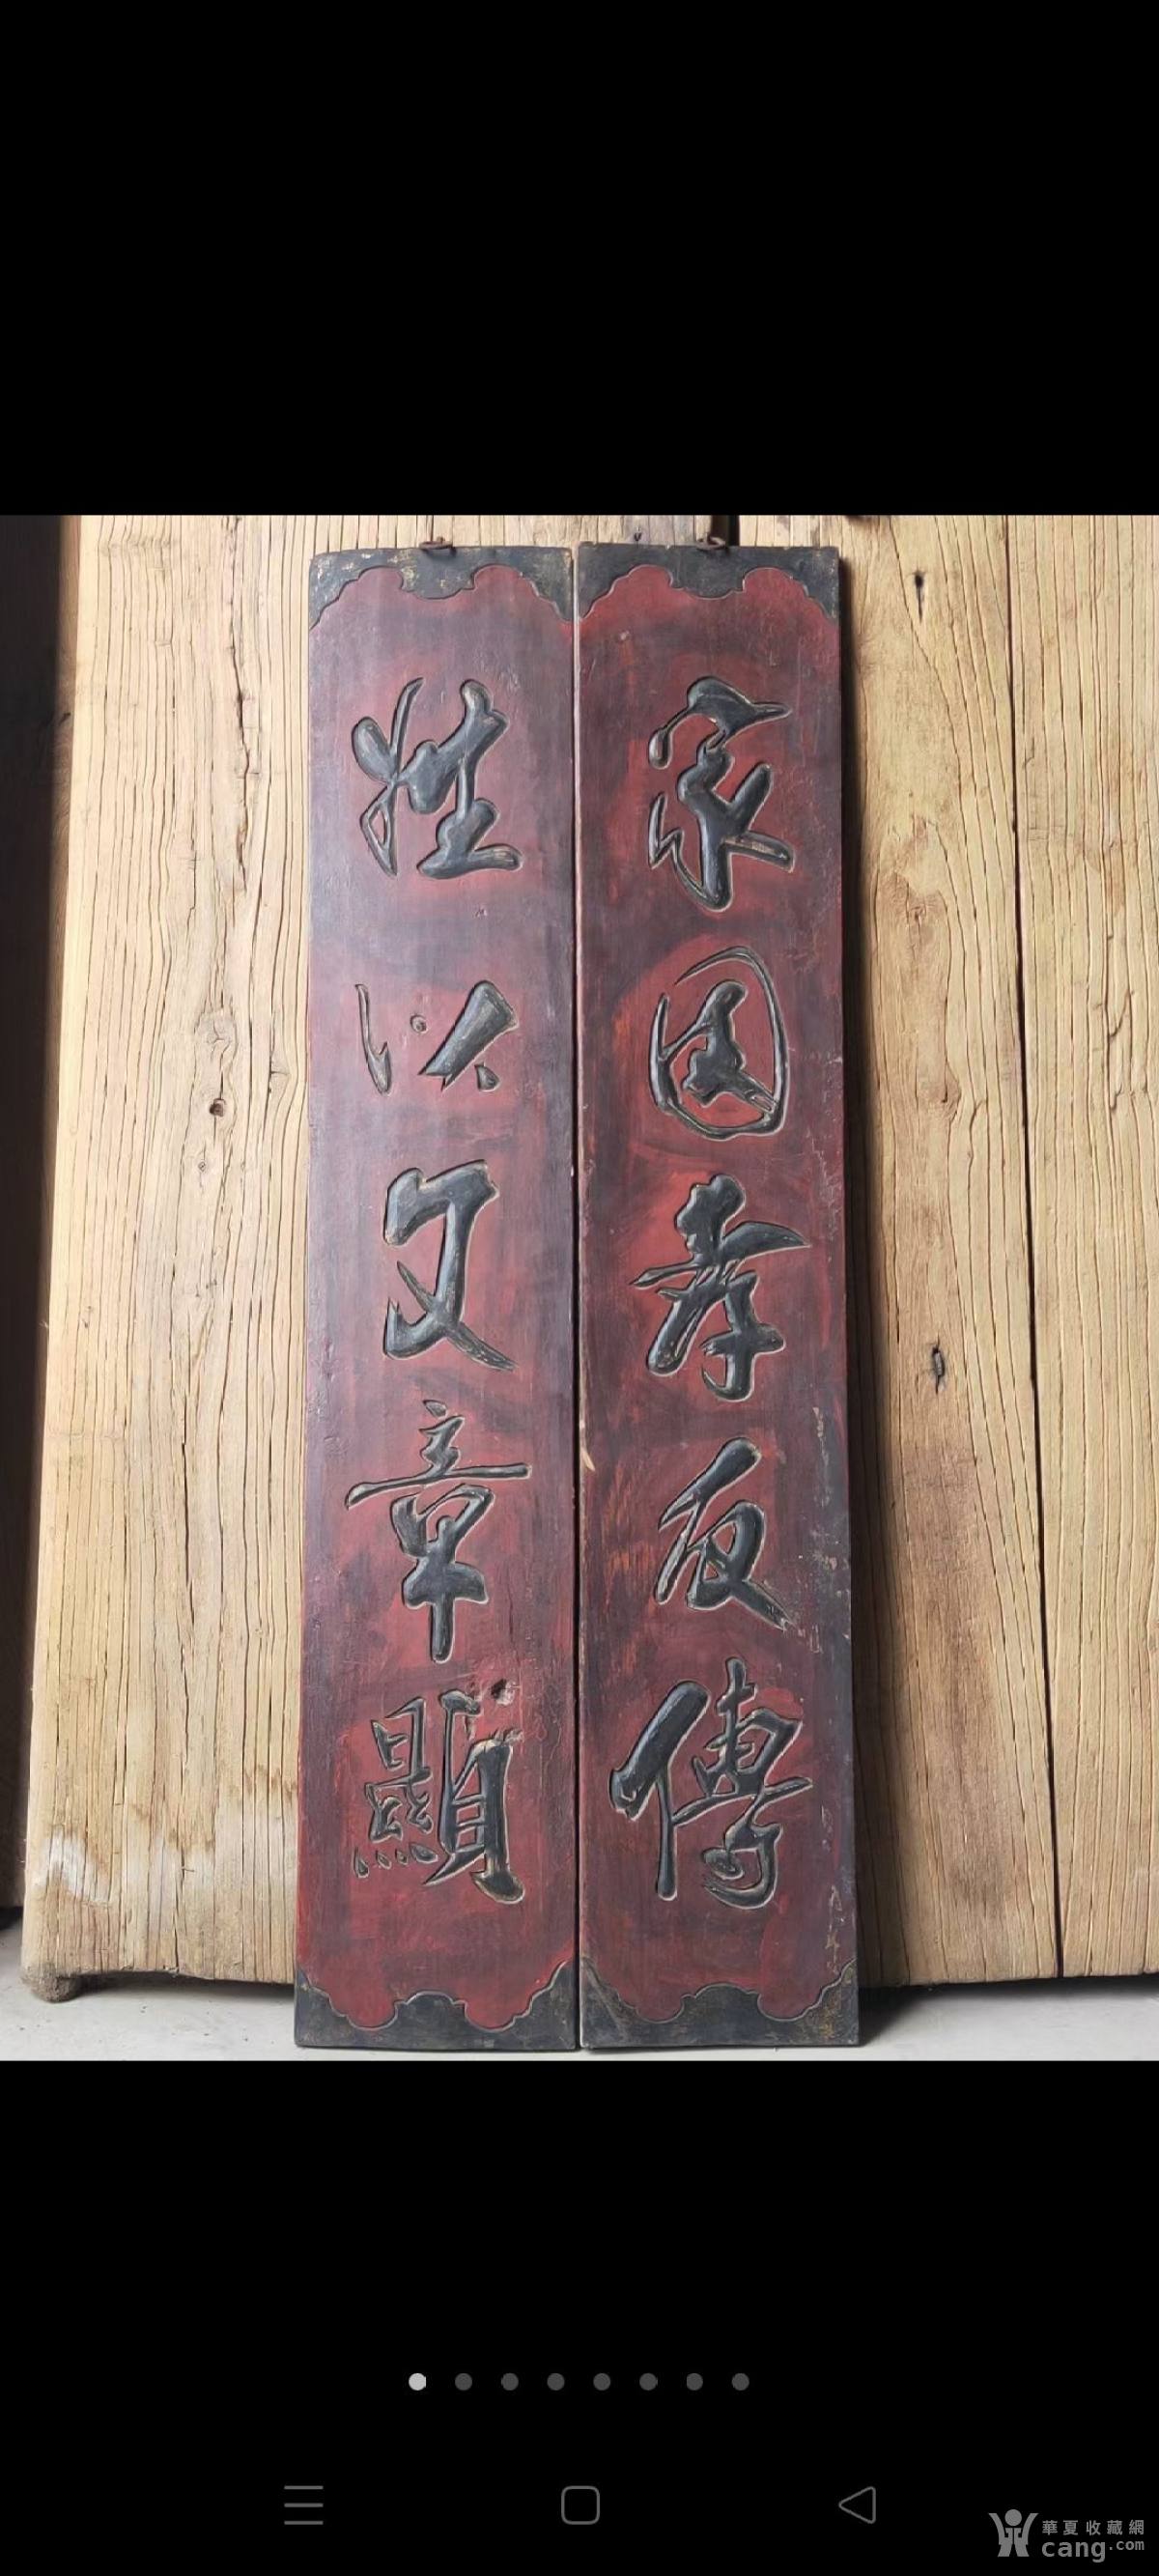 家因孝友傳
姓以文章顯
華夏收藏網
cang.com